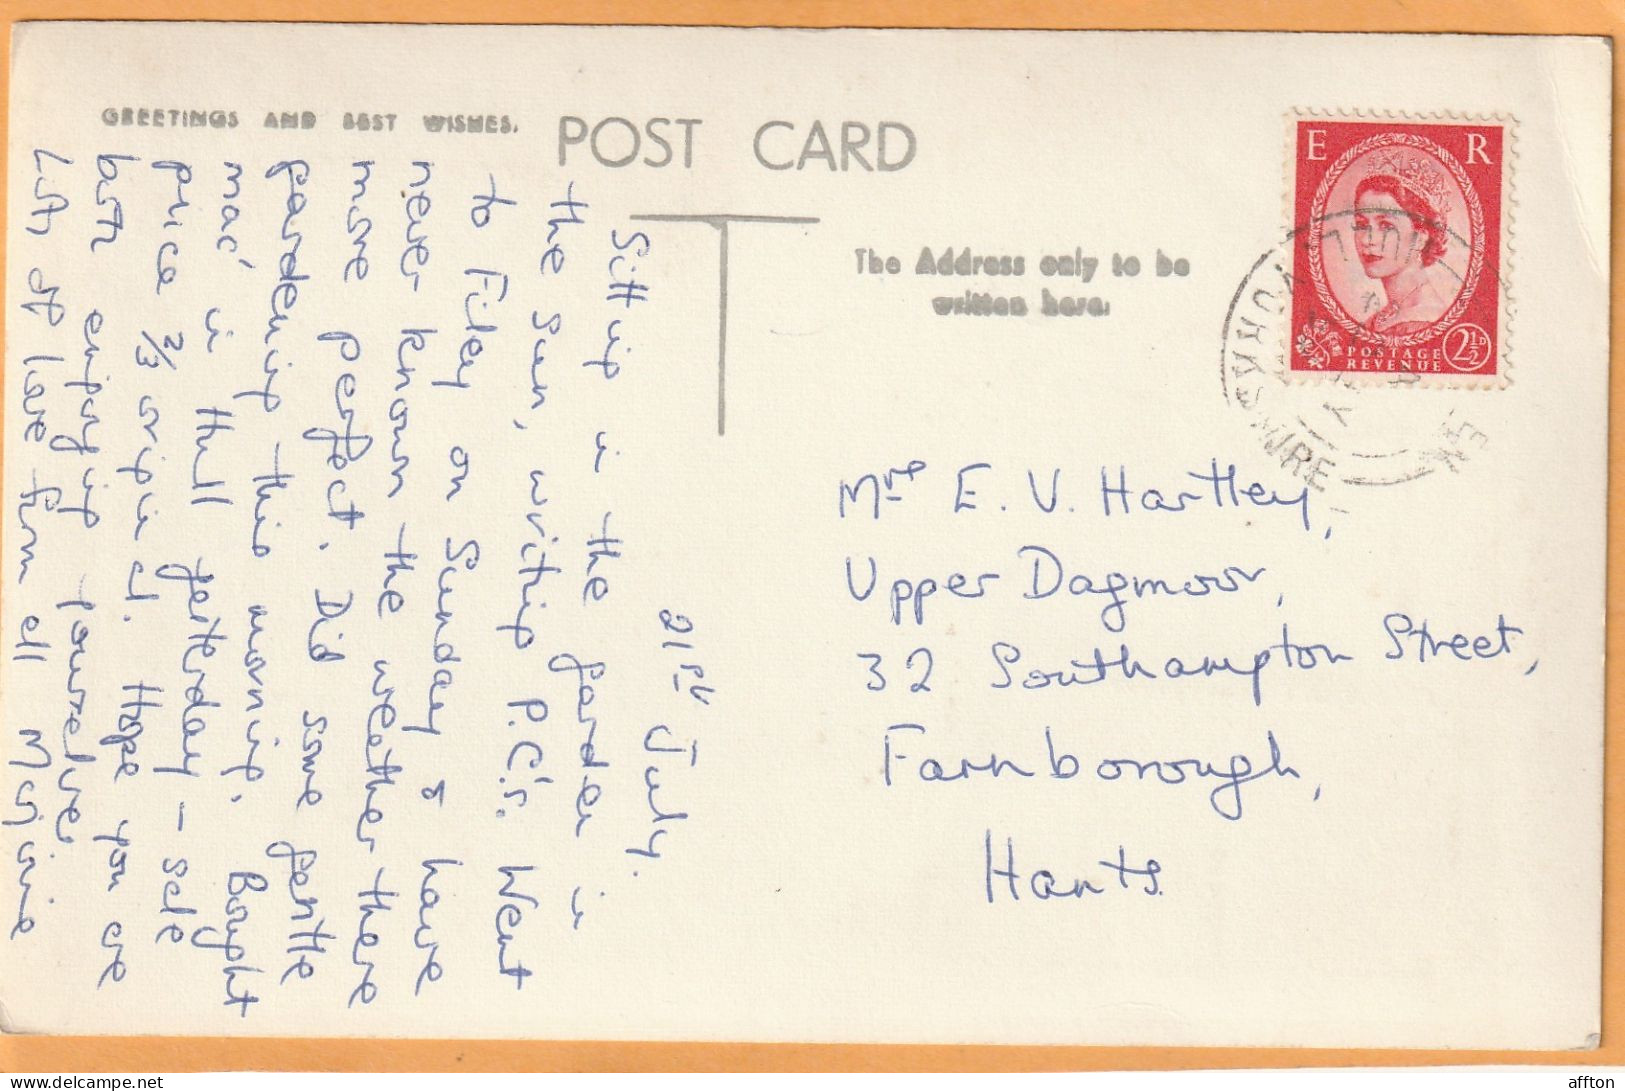 GREETINGS AND BEST WISHES.
POST CARD
The Address only to be
written here.
E R
POSTAGE
REVENUE
2½D
HULL
YORKSHIRE
21st July.
Sitting in the garden in
the sun, writing P.C's. Went
to Filey on Sunday & have
never known the weather there
more perfect. Did some gentle
gardening this morning. Bought
mac in Hull yesterday – sale
price 2/3 original. Hope you are
both enjoying yourselves
Lots of love from all Marjorie
Mrs E. V. Hartley,
Upper Dagmoor,
32 Southampton Street,
Farnborough,
Hants.
affton